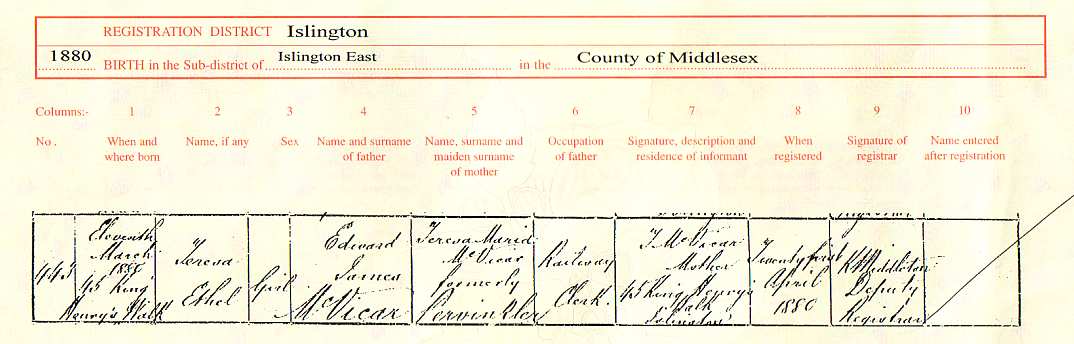 REGISTRATION DISTRICT Islington
1880 BIRTH in the Sub-district of Islington East in the County of Middlesex
Columns:- 1 2 3 4 5 6 7 8 9 10
No. When and where born Name, if any Sex Name and surname of father Name, surname and maiden surname of mother Occupation of father Signature, description and residence of informant When registered Signature of registrar Name entered after registration
443
Eleventh
March
1880
45 King
Henry's Walk
Teresa
Ethel
Girl
Edward
James
McVicar
Teresa Maria
McVicar
formerly
Railway
Clerk.
T McVicar
Mother
45 King Henry's
Walk
Islington
Twenty first
April
1880
Middleton
Deputy
Registrar